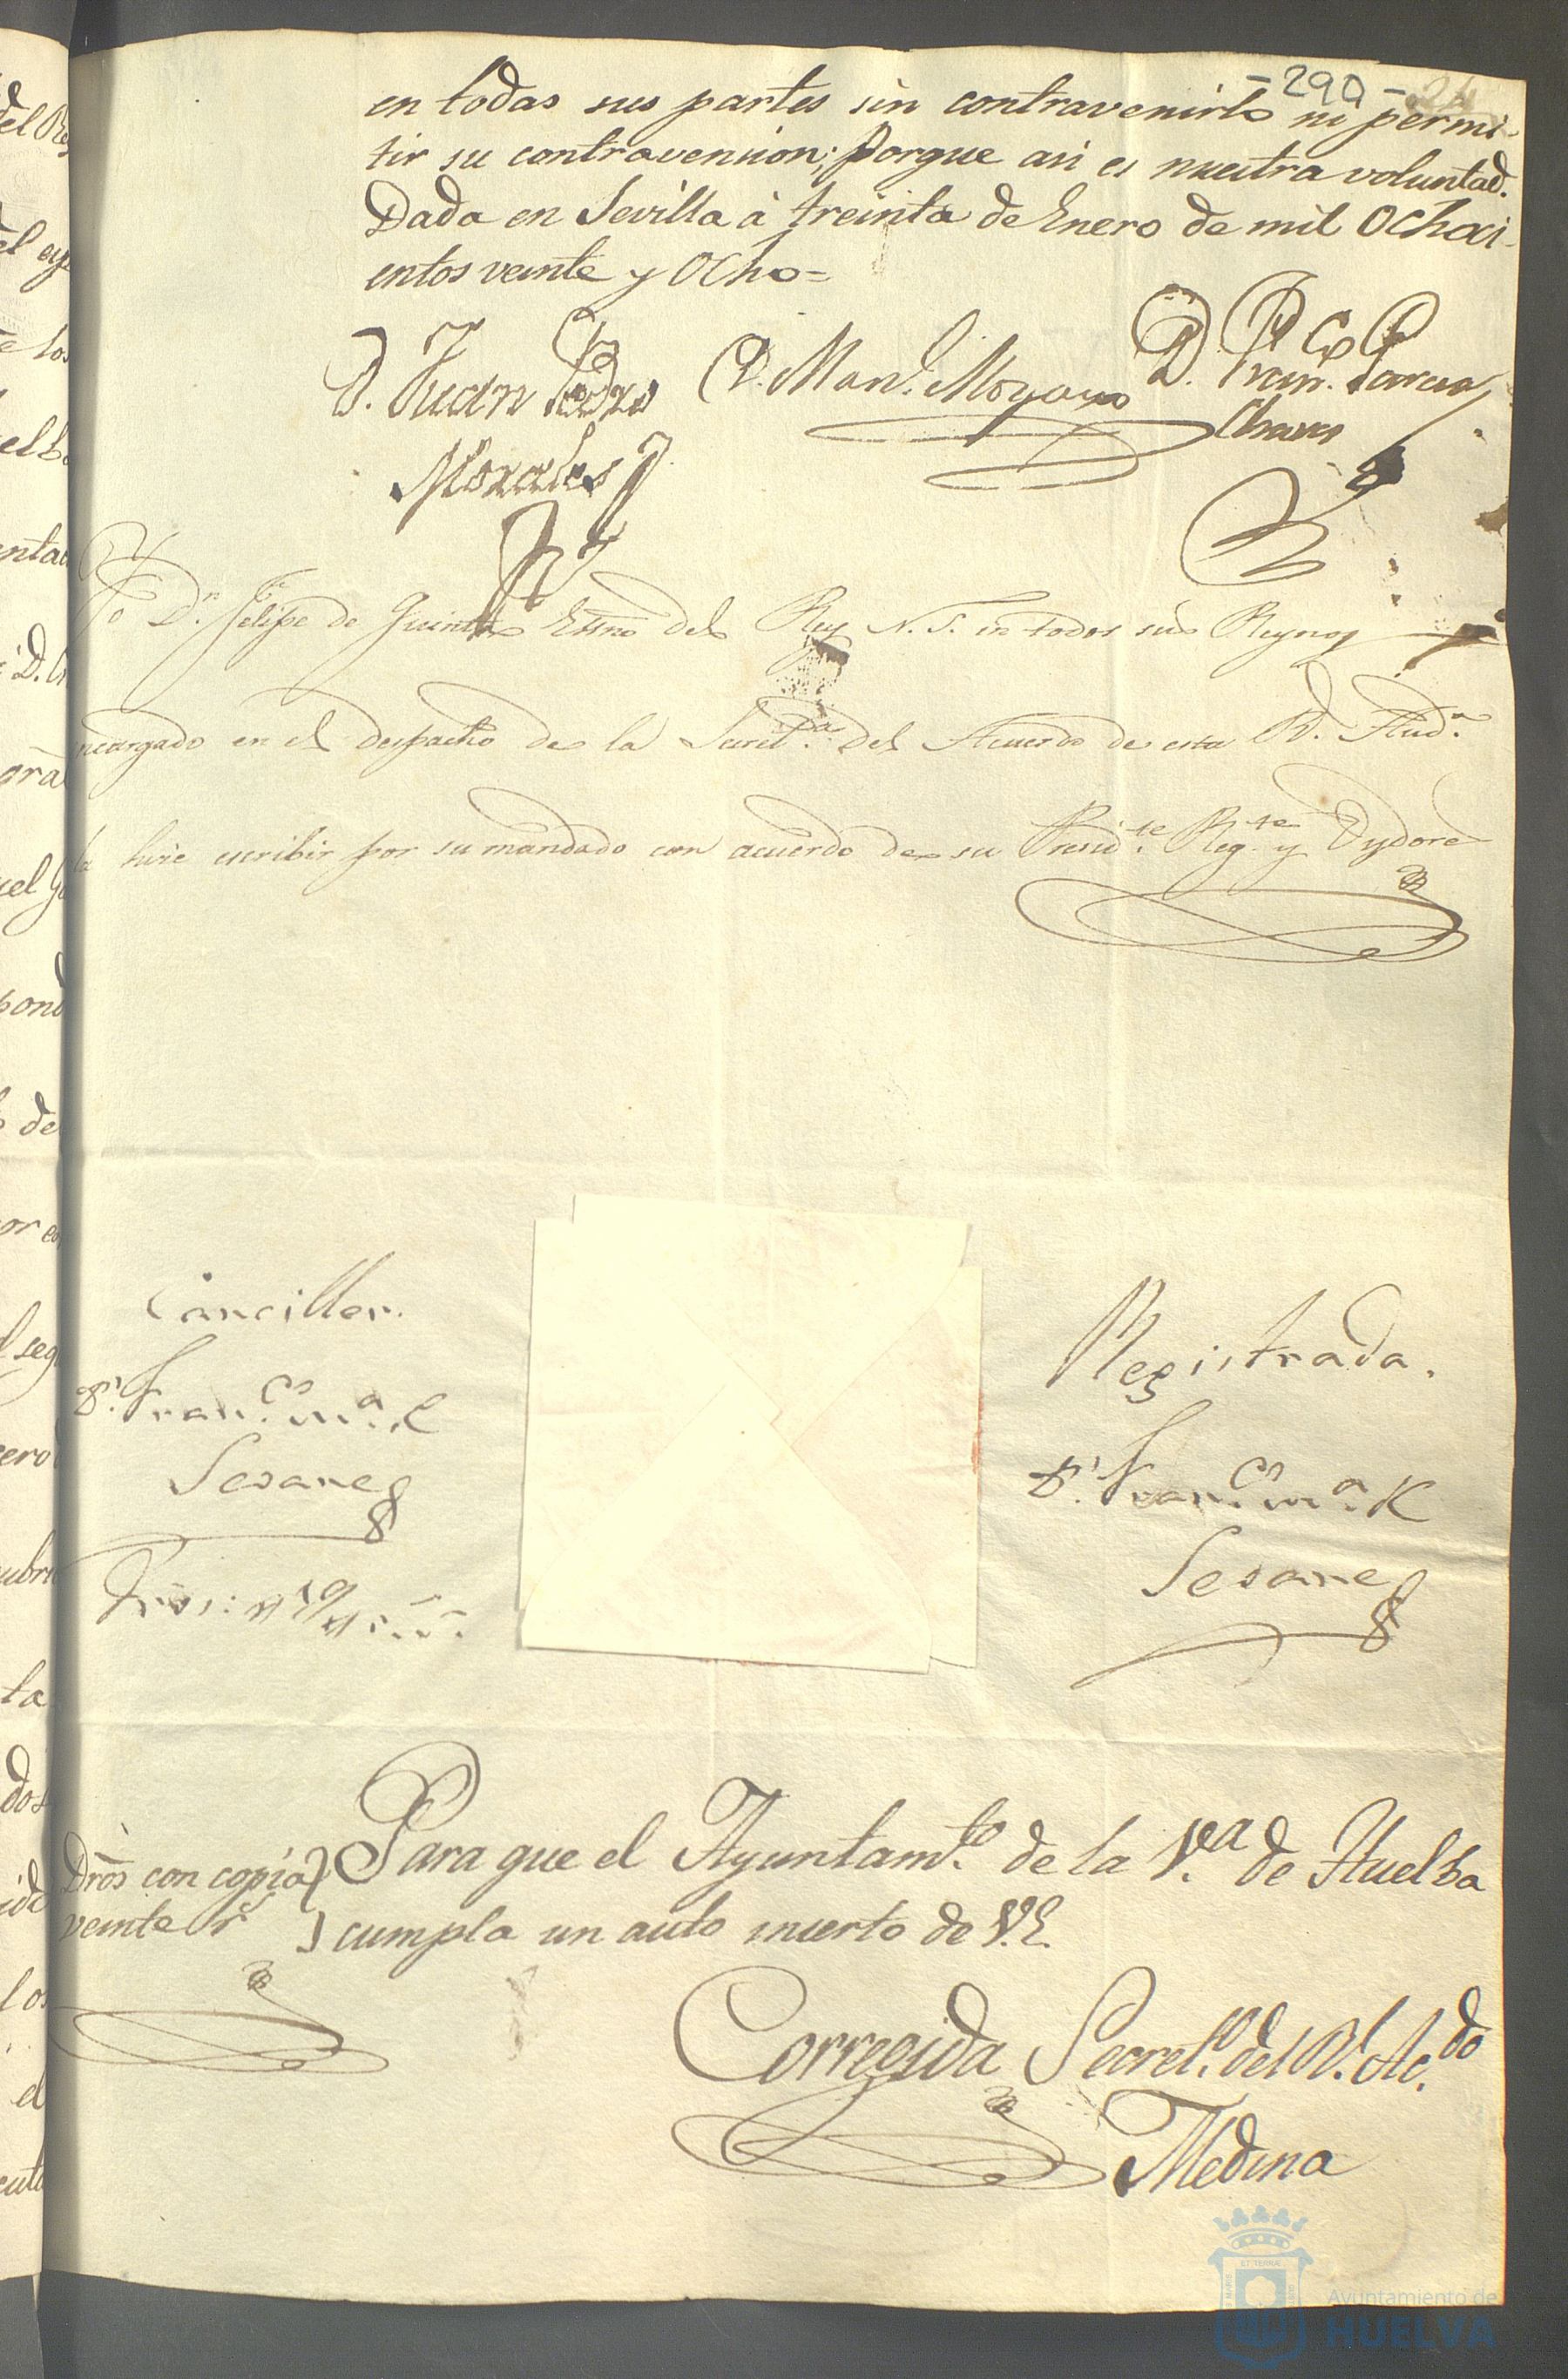 -290-
en todas sus partes sin contravenirlo ni permi-
tir su contravencion; porque asi es nuestra voluntad.
Dada en Sevilla à treinta de Enero de mil Ochoci-
entos veinte y Ocho=
D. Juan Pedro
Morales
D. Man.l Moyano
D. Fran.co Garcia
Chaves
Yo D.n Felipe de Quinta Essno del Rey N. S. en todos sus Reynos
encargado en el despacho de la Secret.a del Acuerdo de esta R. Aud.a
la hice escribir por su mandado con acuerdo de su Presid.te Reg.te y Oydores
Canciller.
D.n Fran.co M.a
Seoane
Registrada.
D.n Fran.co M.a
Seoane
Dros con copia
veinte r.s
Para que el Ayuntam.to de la V.a de Huelba
cumpla un auto inserto de V.E.
Corregida
Secret.o del R.l Ac.do
Medina
Ayuntamiento de
HUELVA